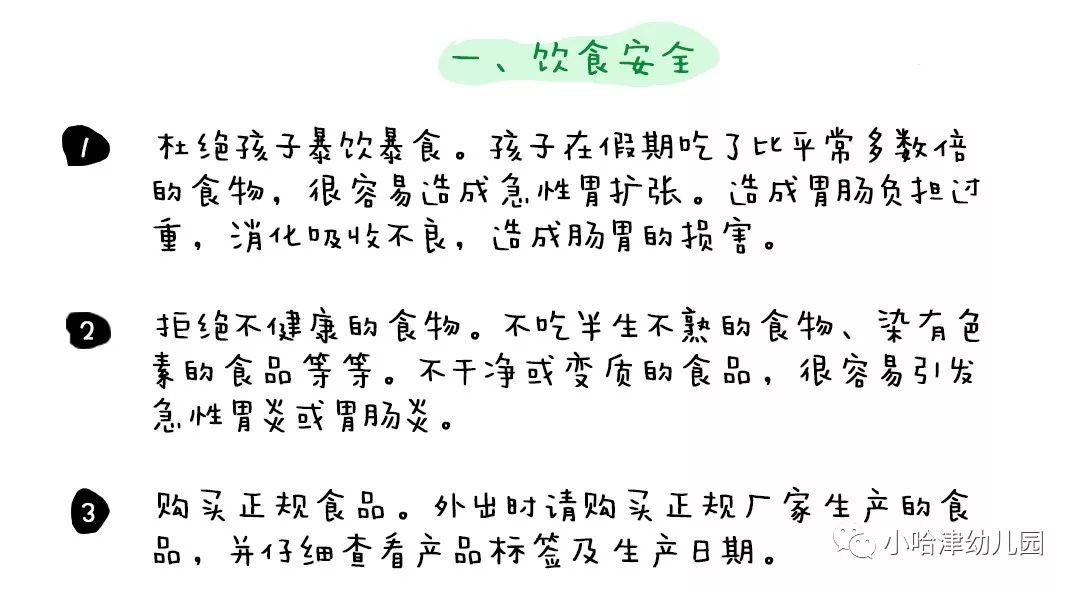 一、饮食安全
1
杜绝孩子暴饮暴食。孩子在假期吃了比平常多数倍
的食物，很容易造成急性胃扩张。造成胃肠负担过
重，消化吸收不良，造成肠胃的损害。
2
拒绝不健康的食物。不吃半生不熟的食物、染有色
素的食品等等。不干净或变质的食品，很容易引发
急性胃炎或胃肠炎。
3
购买正规食品。外出时请购买正规厂家生产的食
品，并仔细查看产品标签及生产日期。
小哈津幼儿园